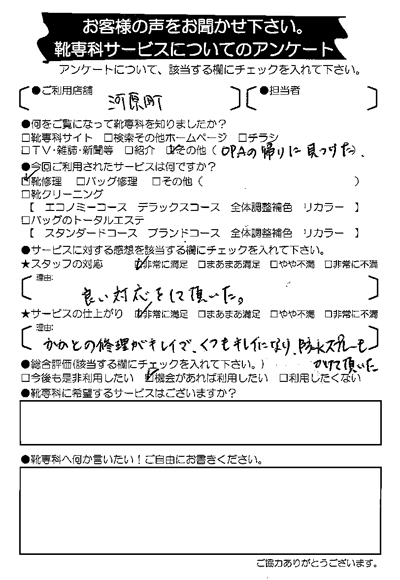 お客様の声をお聞かせ下さい。
靴専科サービスについてのアンケート
アンケートについて、該当する欄にチェックを入れて下さい。
●ご利用店舗 ●担当者
河原町
●何をご覧になって靴専科を知りましたか?
□靴専科サイト □検索その他ホームページ □チラシ
□TV・雑誌・新聞等 □紹介 ☑その他( OPAの帰りに見つけた、
●今回ご利用されたサービスは何ですか?
☑靴修理 □バッグ修理 □その他( )
□靴クリーニング
【 エコノミーコース デラックスコース 全体調整補色 リカラー 】
□バッグのトータルエステ
【 スタンダードコース ブランドコース 全体調整補色 リカラー 】
●サービスに対する感想を該当する欄にチェックを入れて下さい。
★スタッフの対応 ☑非常に満足 □まあまあ満足 □やや不満 □非常に不満
理由:
良い対応をして頂いた。
★サービスの仕上がり ☑非常に満足 □まあまあ満足 □やや不満 □非常に不満
理由:
かかとの修理がキレイで、くつもキレイになり、防水スプレーも
かけて頂いた
●総合評価(該当する欄にチェックを入れて下さい。)
□今後も是非利用したい ☑機会があれば利用したい □利用したくない
●靴専科に希望するサービスはございますか?
●靴専科へ何か言いたい!ご自由にお書きください。
ご協力ありがとうございます。